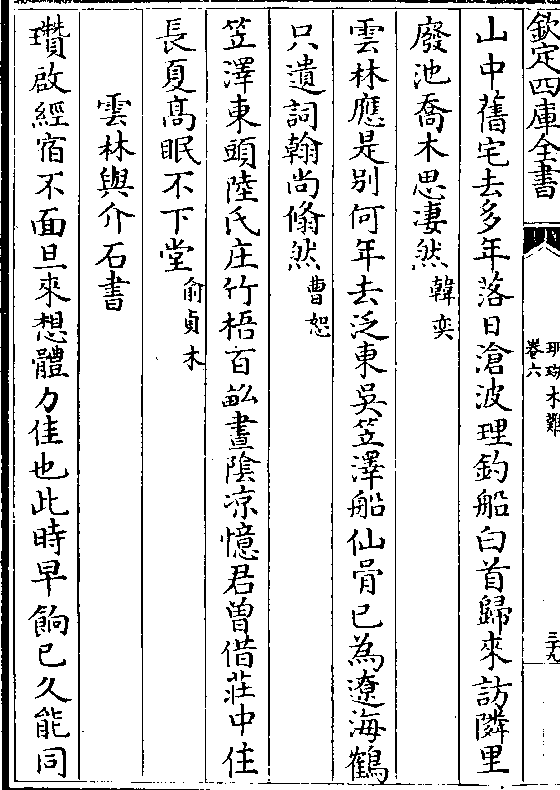 欽定四庫全書
珊瑚木難
卷六
三十九
山中舊宅去多年落日滄波理釣船白首歸來訪隣里
廢池喬木思淒然韓奕
雲林應是别何年去泛東吳笠澤船仙骨已為遼海鶴
只遺詞翰尚翛然曹恕
笠澤東頭陸氏庄竹梧百畝晝陰凉憶君曾借莊中住
長夏髙眠不下堂俞貞木
雲林與介石書
瓚啟經宿不面旦來想體力佳也此時早餉已久能同